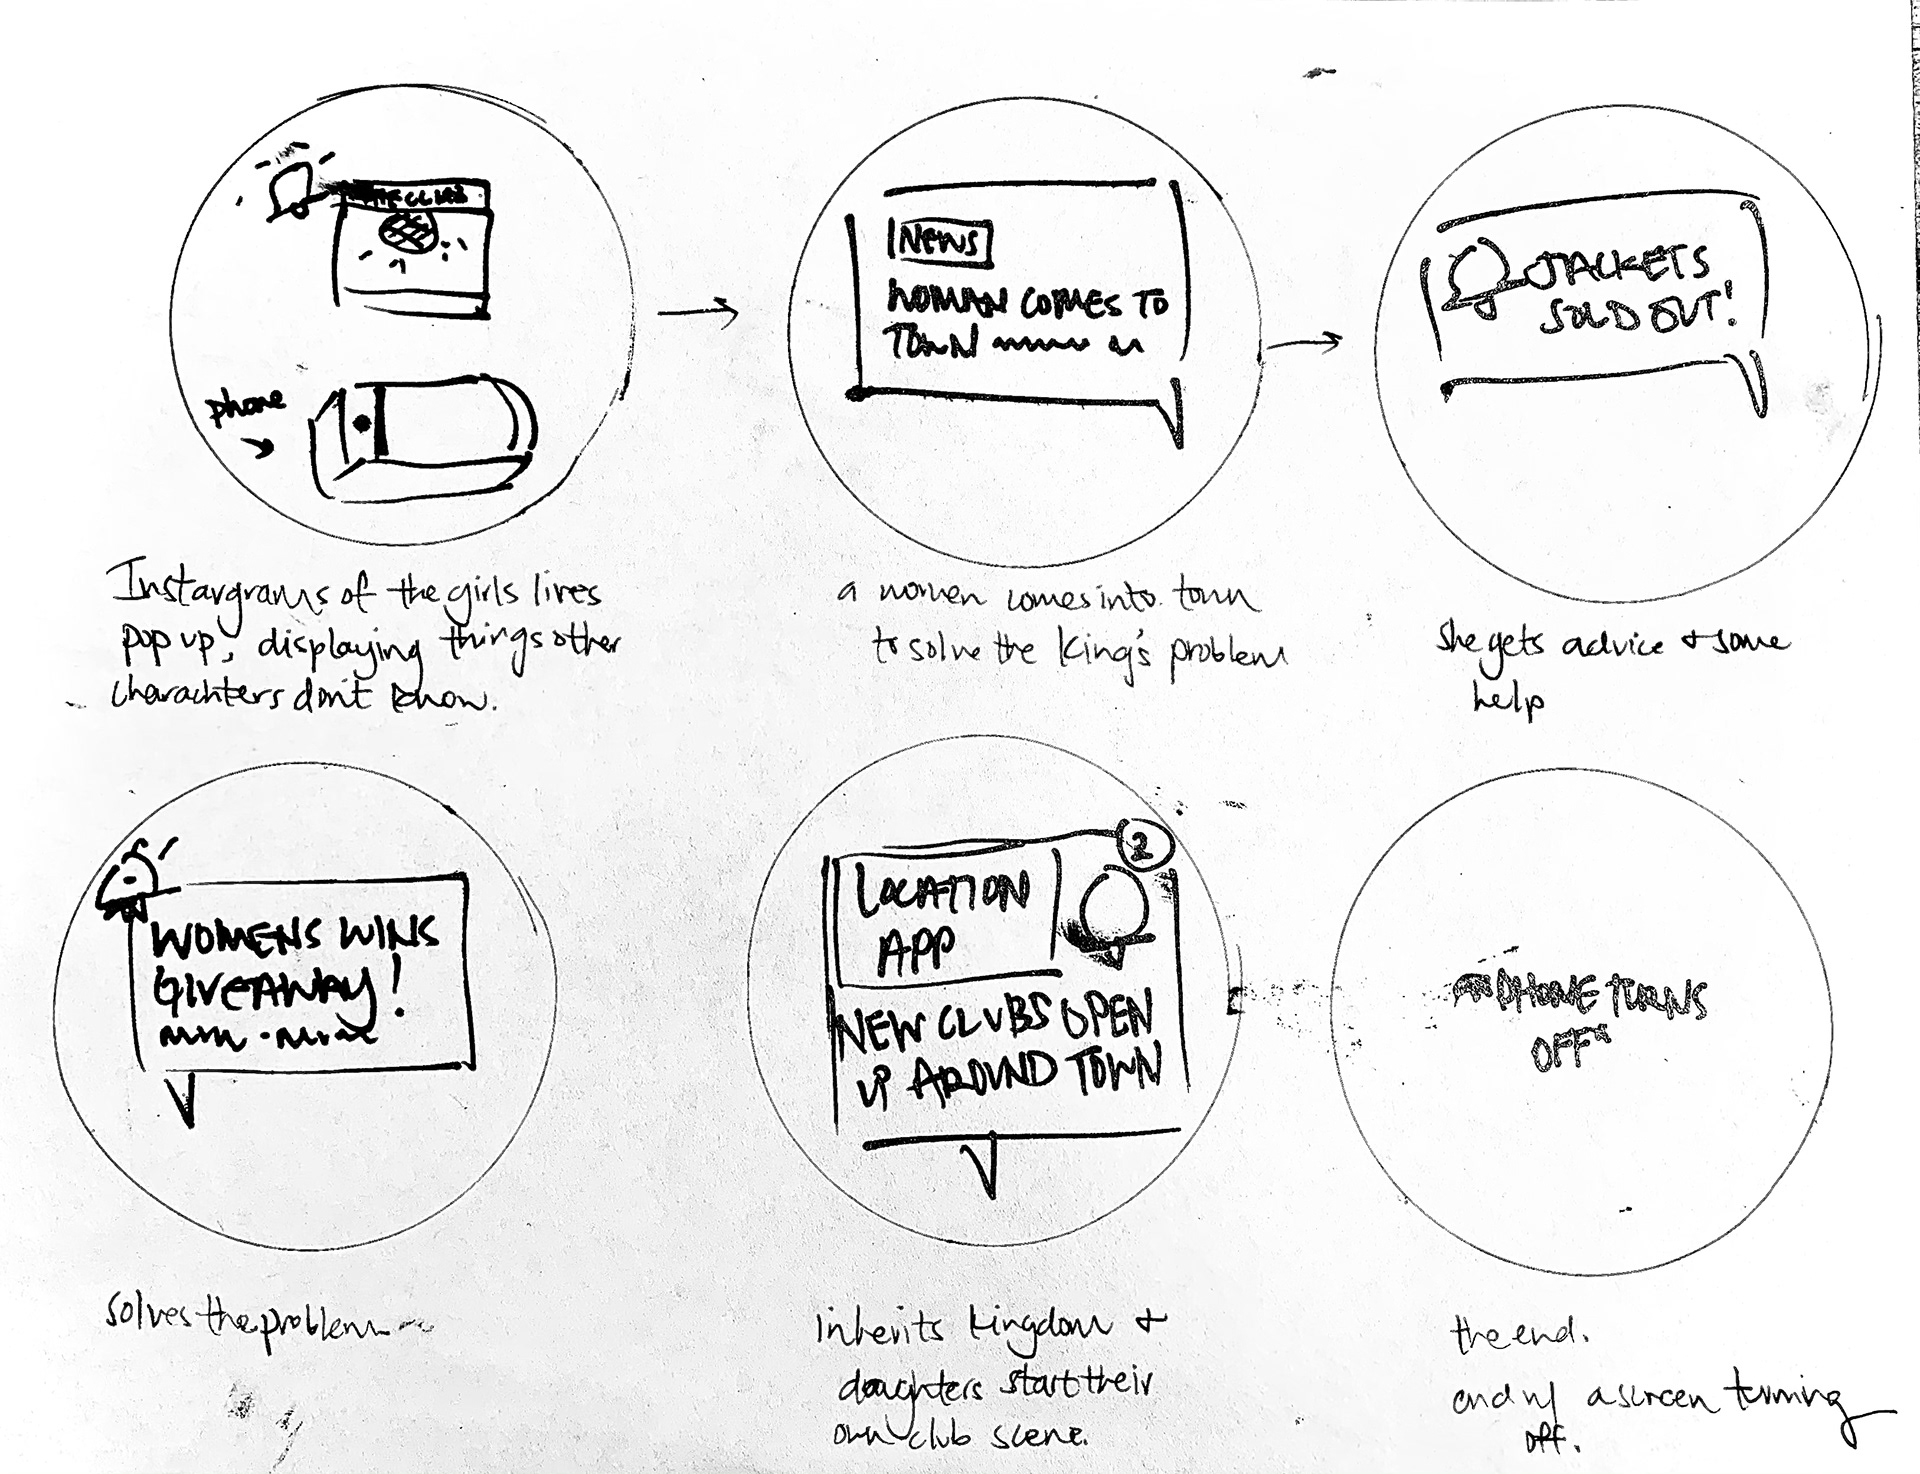 THE CLUB
phone
Instargrams of the girls lives
pop up, displaying things other
charachters don't know.
NEWS
WOMAN COMES TO
TOWN
a women comes into town
to solve the King's problem
JACKETS
SOLD OUT!
She gets advice & some
help
WOMENS WINS
GIVEAWAY!
solves the problem
2
LOCATION
APP
NEW CLUBS OPEN
UP AROUND TOWN
inherits kingdom &
daughters start their
own club scene.
PHONE TURNS
OFF*
the end.
end w/ a screen turning
off.